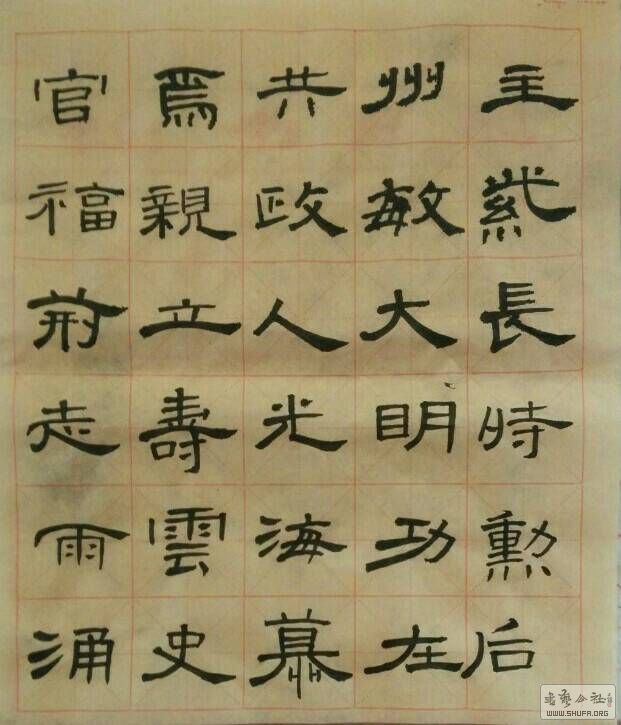 主長時勲后
州敏大明功在
共政人光海慕
焉親立壽雲史
官福荊志雨涌
书艺公社
WWW.SHUFA.ORG